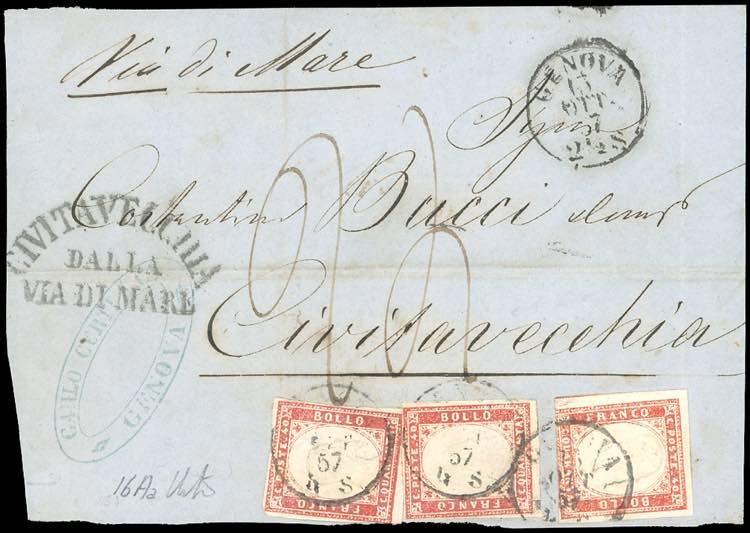 Via di Mare
GENOVA
OTT
57
2½ S
Sigr
Costantino Bucci
Civitavecchia
CIVITAVECCHIA
DALLA
VIA DI MARE
CARLO
GENOVA
BOLLO
C. POSTE. 40
FRANCO
57
S
BOLLO
C. POSTE. 40
C. QUARANTA
FRANCO
57
S
FRANCO
C. POSTE. 40
BOLLO
16Aa